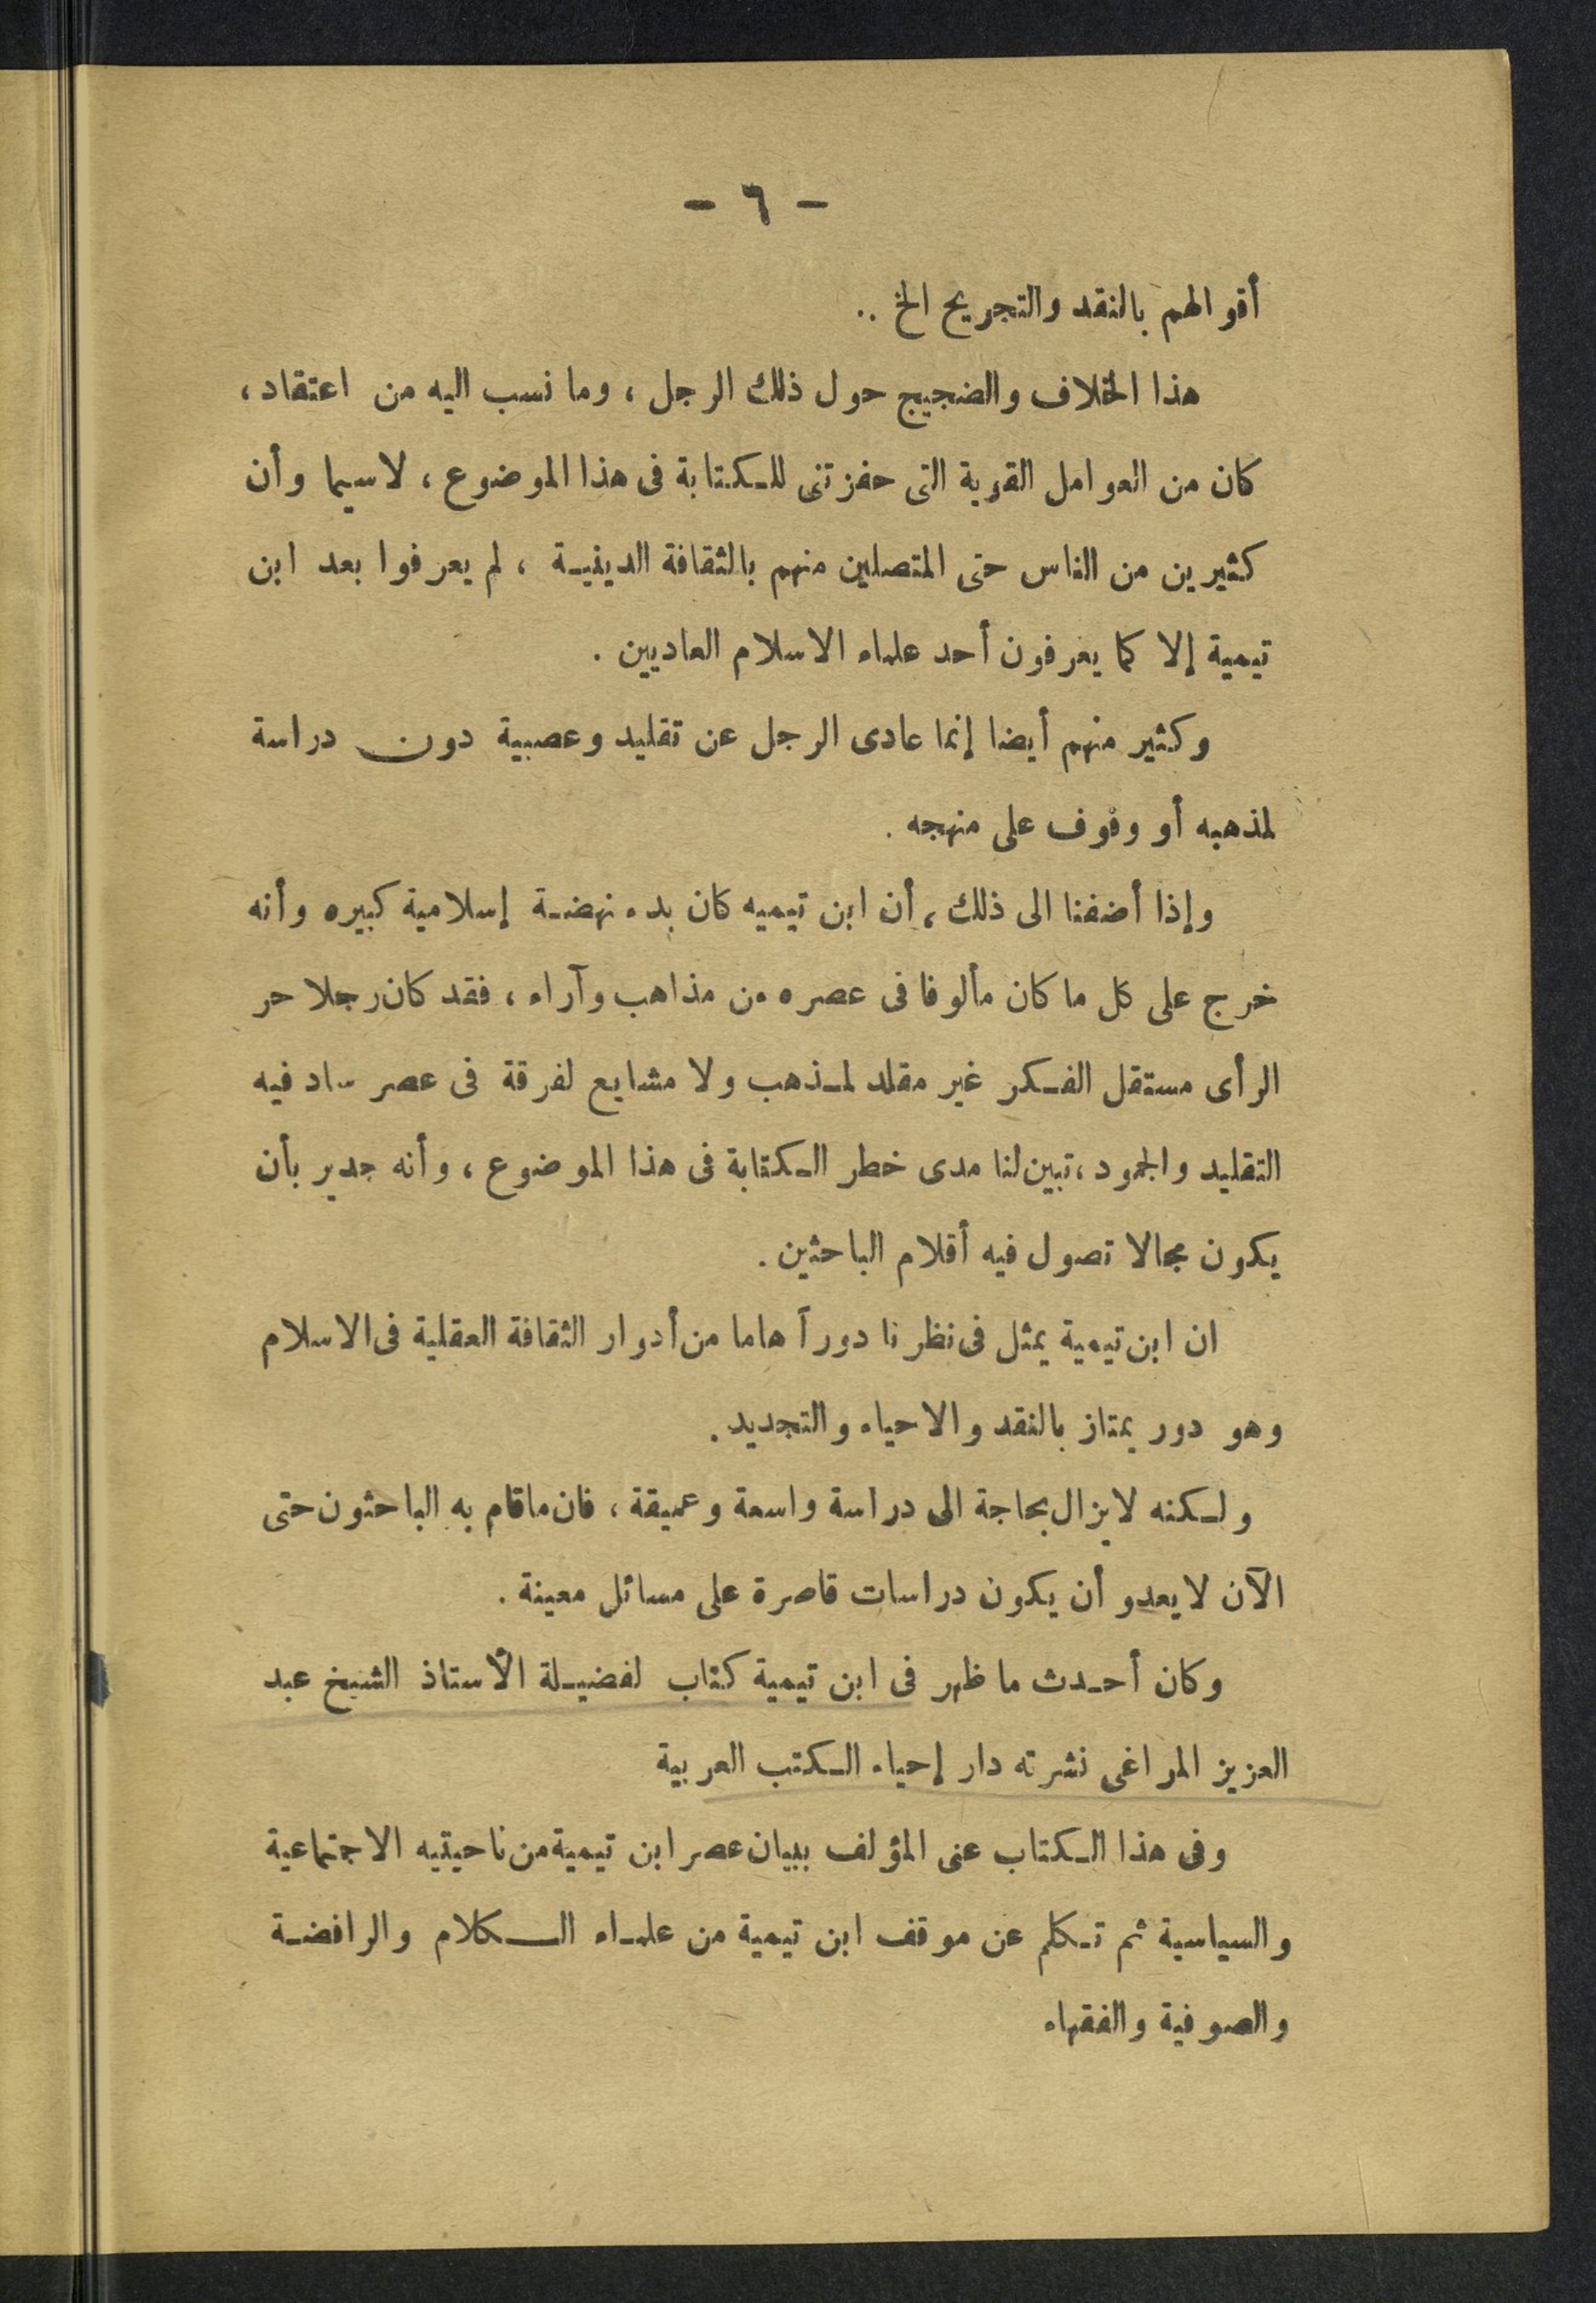 - ٦ -
أقوالهم بالنقد والتجريح الخ ..
هذا الخلاف والضجيج حول ذلك الرجل ، وما نسب اليه من اعتقاد ،
كان من العوامل القوية التى حفزتنى للكتابة فى هذا الموضوع ، لاسيما وأن
كثيرين من الناس حتى المتصلين منهم بالثقافة الدينية ، لم يعرفوا بعد ابن
تيمية إلا كما يعرفون أحد علماء الاسلام العاديين .
وكثير منهم أيضا إنما عادى الرجل عن تقليد وعصبية دون دراسة
لمذهبه أو وقوف على منهجه .
وإذا أضفنا الى ذلك ، أن ابن تيميه كان بدء نهضة إسلامية كبيره وأنه
خرج على كل ما كان مألوفا فى عصره من مذاهب وآراء ، فقد كان رجلا حر
الرأى مستقل الفكر غير مقلد لمذهب ولا مشايع لفرقة فى عصر ساد فيه
التقليد والجمود ، تبين لنا مدى خطر الكتابة فى هذا الموضوع ، وأنه جدير بأن
يكون مجالا تصول فيه أقلام الباحثين .
ان ابن تيمية يمثل فى نظرنا دوراً هاما من أدوار الثقافة العقلية فى الاسلام
وهو دور يمتاز بالنقد والاحياء والتجديد .
ولكنه لا يزال بحاجة الى دراسة واسعة وعميقة ، فان ما قام به الباحثون حتى
الآن لا يعدو أن يكون دراسات قاصرة على مسائل معينة .
وكان أحدث ما ظهر فى ابن تيمية كتاب لفضيلة الأستاذ الشيخ عبد
العزيز المراغى نشرته دار إحياء الكتب العربية
وفى هذا الكتاب عنى المؤلف ببيان عصر ابن تيمية من ناحيتيه الاجتماعية
والسياسية ثم تكلم عن موقف ابن تيمية من علماء الكلام والرافضة
والصوفية والفقهاء